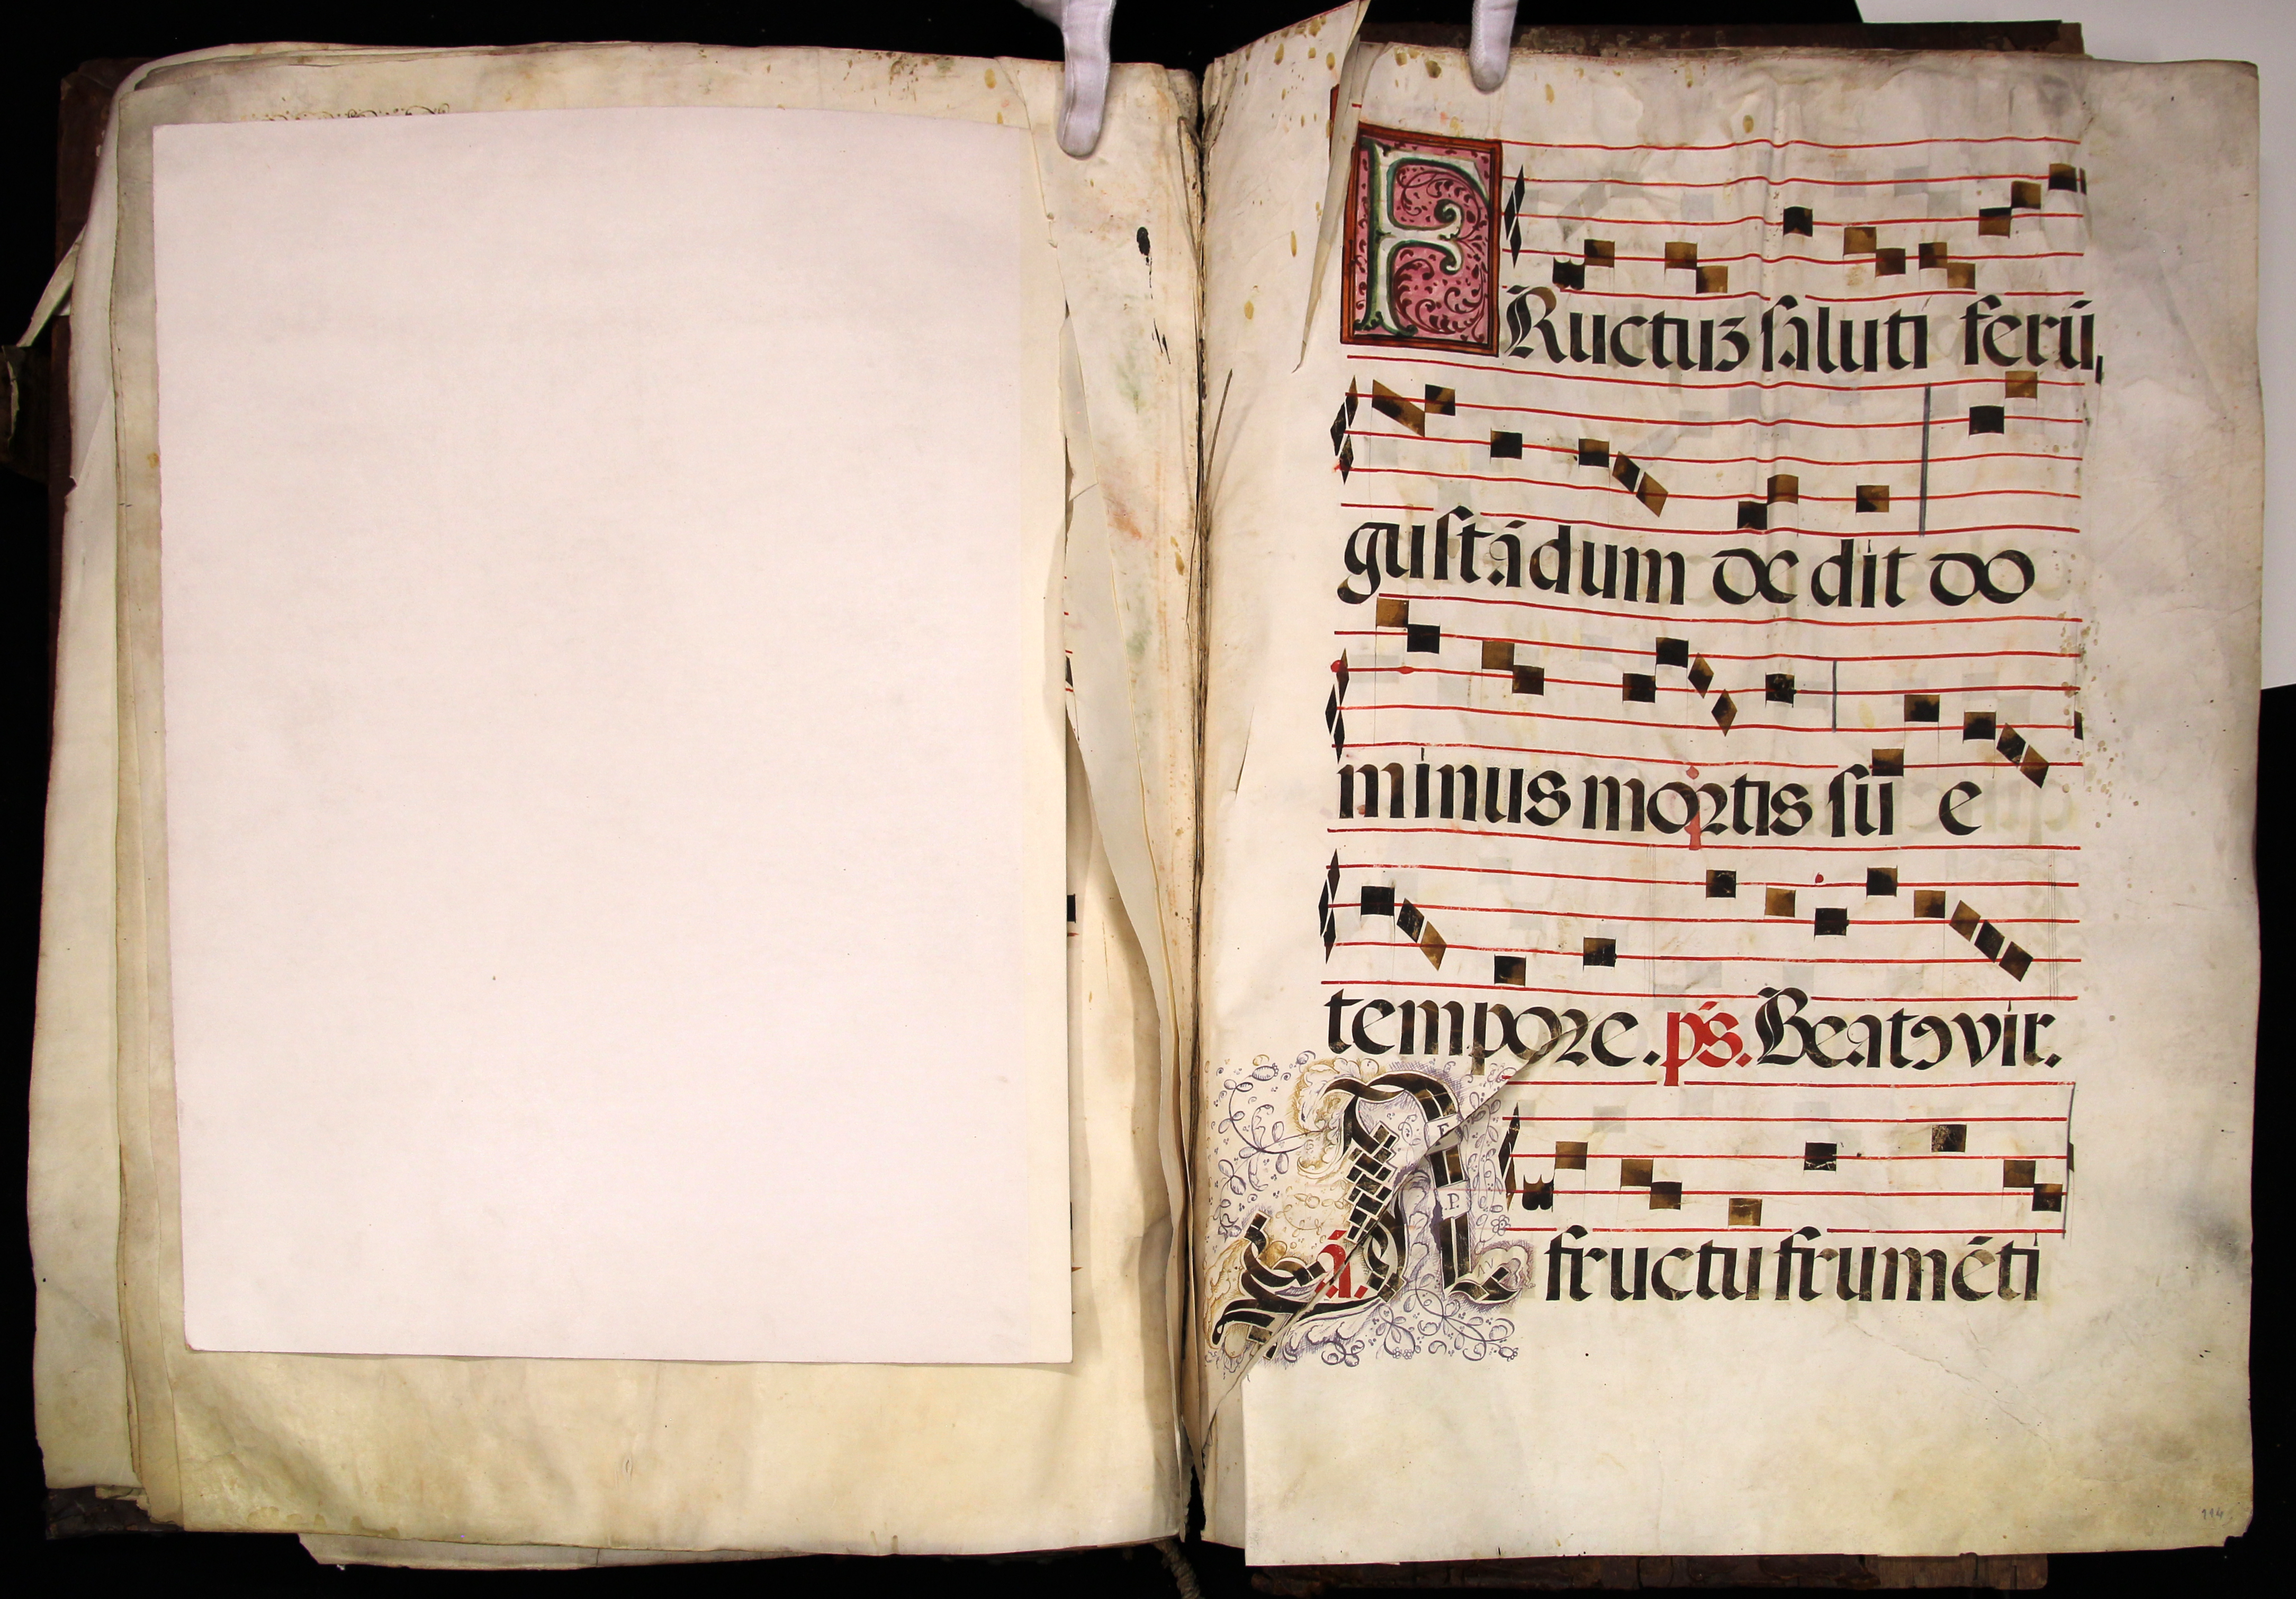 FRuctuz saluti ferū,
gustādum de dit do
minus mortis su e
tempore. ps. Beatꝰ vir.
A fructu frumēti
a.
F.
P.
114